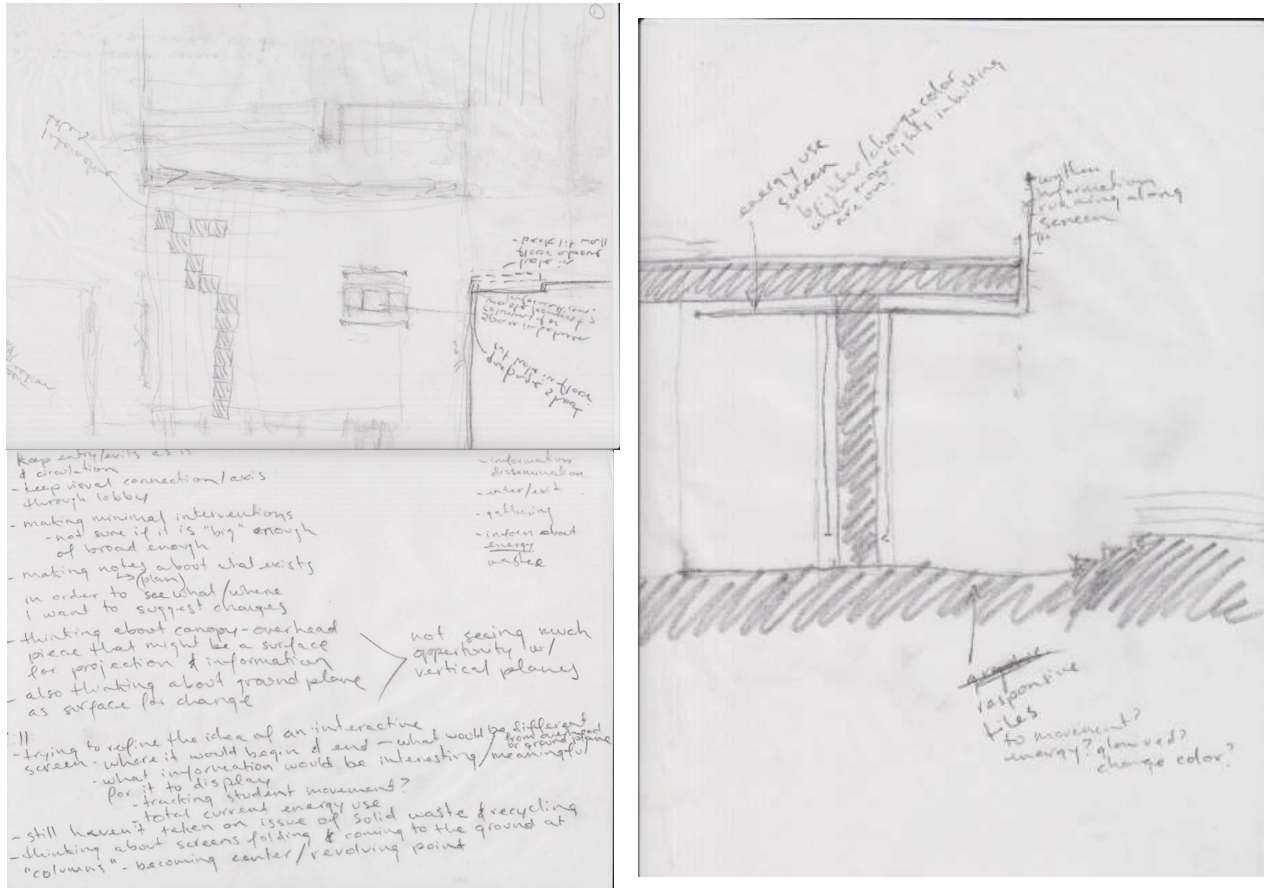 ①
- back lit wall
floor above
hole in
cut hole in floor
keep entry/exits as is
& circulation
- keep visual connection/axis
through lobby
- making minimal interventions
- not sure if it is "big" enough
of broad enough
- making notes about what exists
(plan)
in order to see what/where
I want to suggest changes
- thinking about canopy-overhead
piece that might be a surface
for projection & information
- also thinking about ground plane
as surface for change
not seeing much
opportunity w/
vertical planes
- information
dissemination
- enter/exit
- gathering
- inform about
energy
waste
- trying to refine the idea of an interactive
screen - where it would begin & end - what would be different
from overhead
or ground plane
- what information would be interesting/meaningful
for it to display
- tracking student movement?
- total current energy use
- still haven't taken on issue of solid waste & recycling
- thinking about screens folding & coming to the ground at
"columns" - becoming center/revolving point
energy use
screen
brighter/change color
when more lights in building
are on
written
information
running along
screen
graphic
responsive
tiles
to movement?
energy? glow red?
change color?